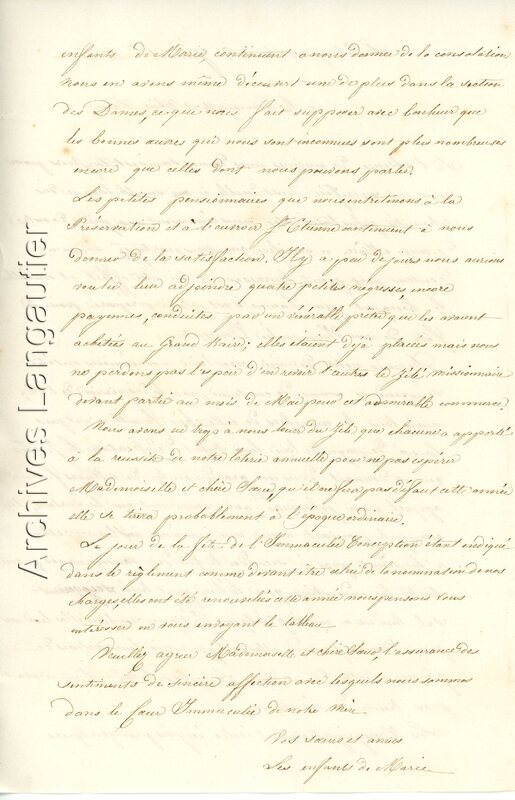 enfants de Marie, continuent a nous donner de la consolation
nous en avons même découvert une de plus dans la section
des Dames, ce que nous fait supposer avec bonheur que
les bonnes œuvres qui nous sont inconnues sont plus nombreuses
encore que celles dont nous pouvons parler.
Les petites pensionnaires que nous entretenons à la
Préservation et à l'ouvroir St Etienne continuent à nous
donner de la satisfaction. Il y a peu de jours nous aurions
voulu leur adjoindre quatre petites negresses, encore
payennes, conduites par un vénérable prêtre qui les avaient
achetées au Grand Kaire; elles étaient déjà placées mais nous
ne perdons pas l'espoir d'en revoir d'autres le Zélé missionnaire
devant partir au mois de Mai pour cet admirable commerce.
Nous avons eu trop à nous louer du Zèle que chacune a apporté
à la réussite de notre loterie annuelle pour ne pas espérer
Mademoiselle et chère Sœur, qu'il ne fera pas défaut cette année
elle se tirera probablement à l'époque ordinaire.
Le jour de la fête de l'Immaculée Conception étant indiqué
dans le règlement comme devant être celui de la nomination de nos
charges, elles ont été renouvelées cette année nous pensons vous
intéresser en vous envoyant le tableau
Veuillez agréer Mademoiselle et chère Sœur, l'assurance des
sentiments de sincère affection avec lesquels nous sommes
dans le Cœur Immaculée de notre Mère
Vos sœurs et amies
Les enfants de Marie
Archives Langautier